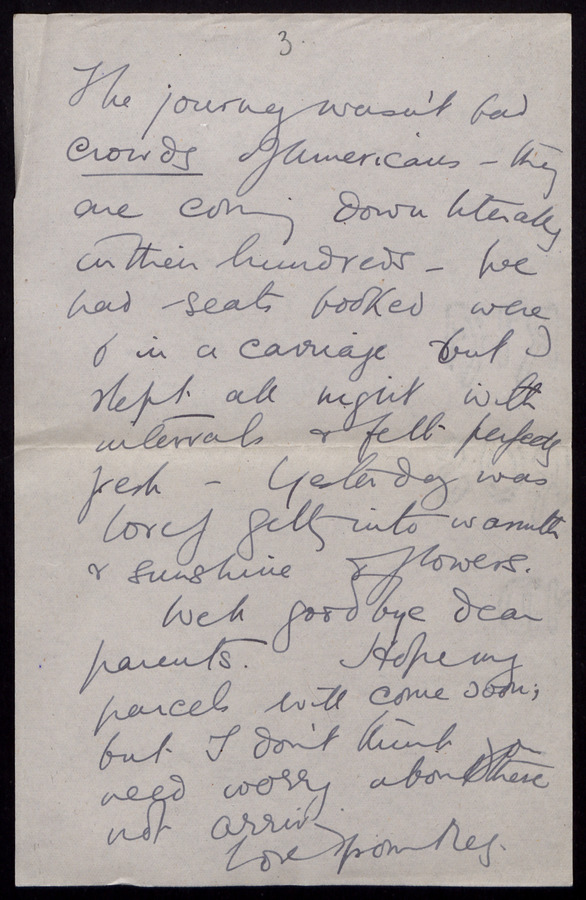 3.
The journey wasn't bad
crowds of Americans – they
are coming down literally
in their hundreds – We
had seats booked were
6 in a carriage but I
slept all night with
intervals & felt perfectly
fresh – Yesterday was
lovely getting into warmth
& sunshine & flowers.
Well goodbye dear
parents. Hope my
parcels will come soon;
but I don't think you
need worry about there
not arriving.
Love from Reg.